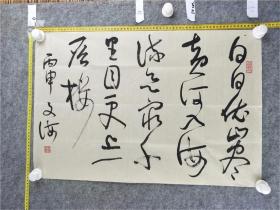 白日依山尽
黄河入海
流欲穷千
里目更上一
层楼
丙申文海